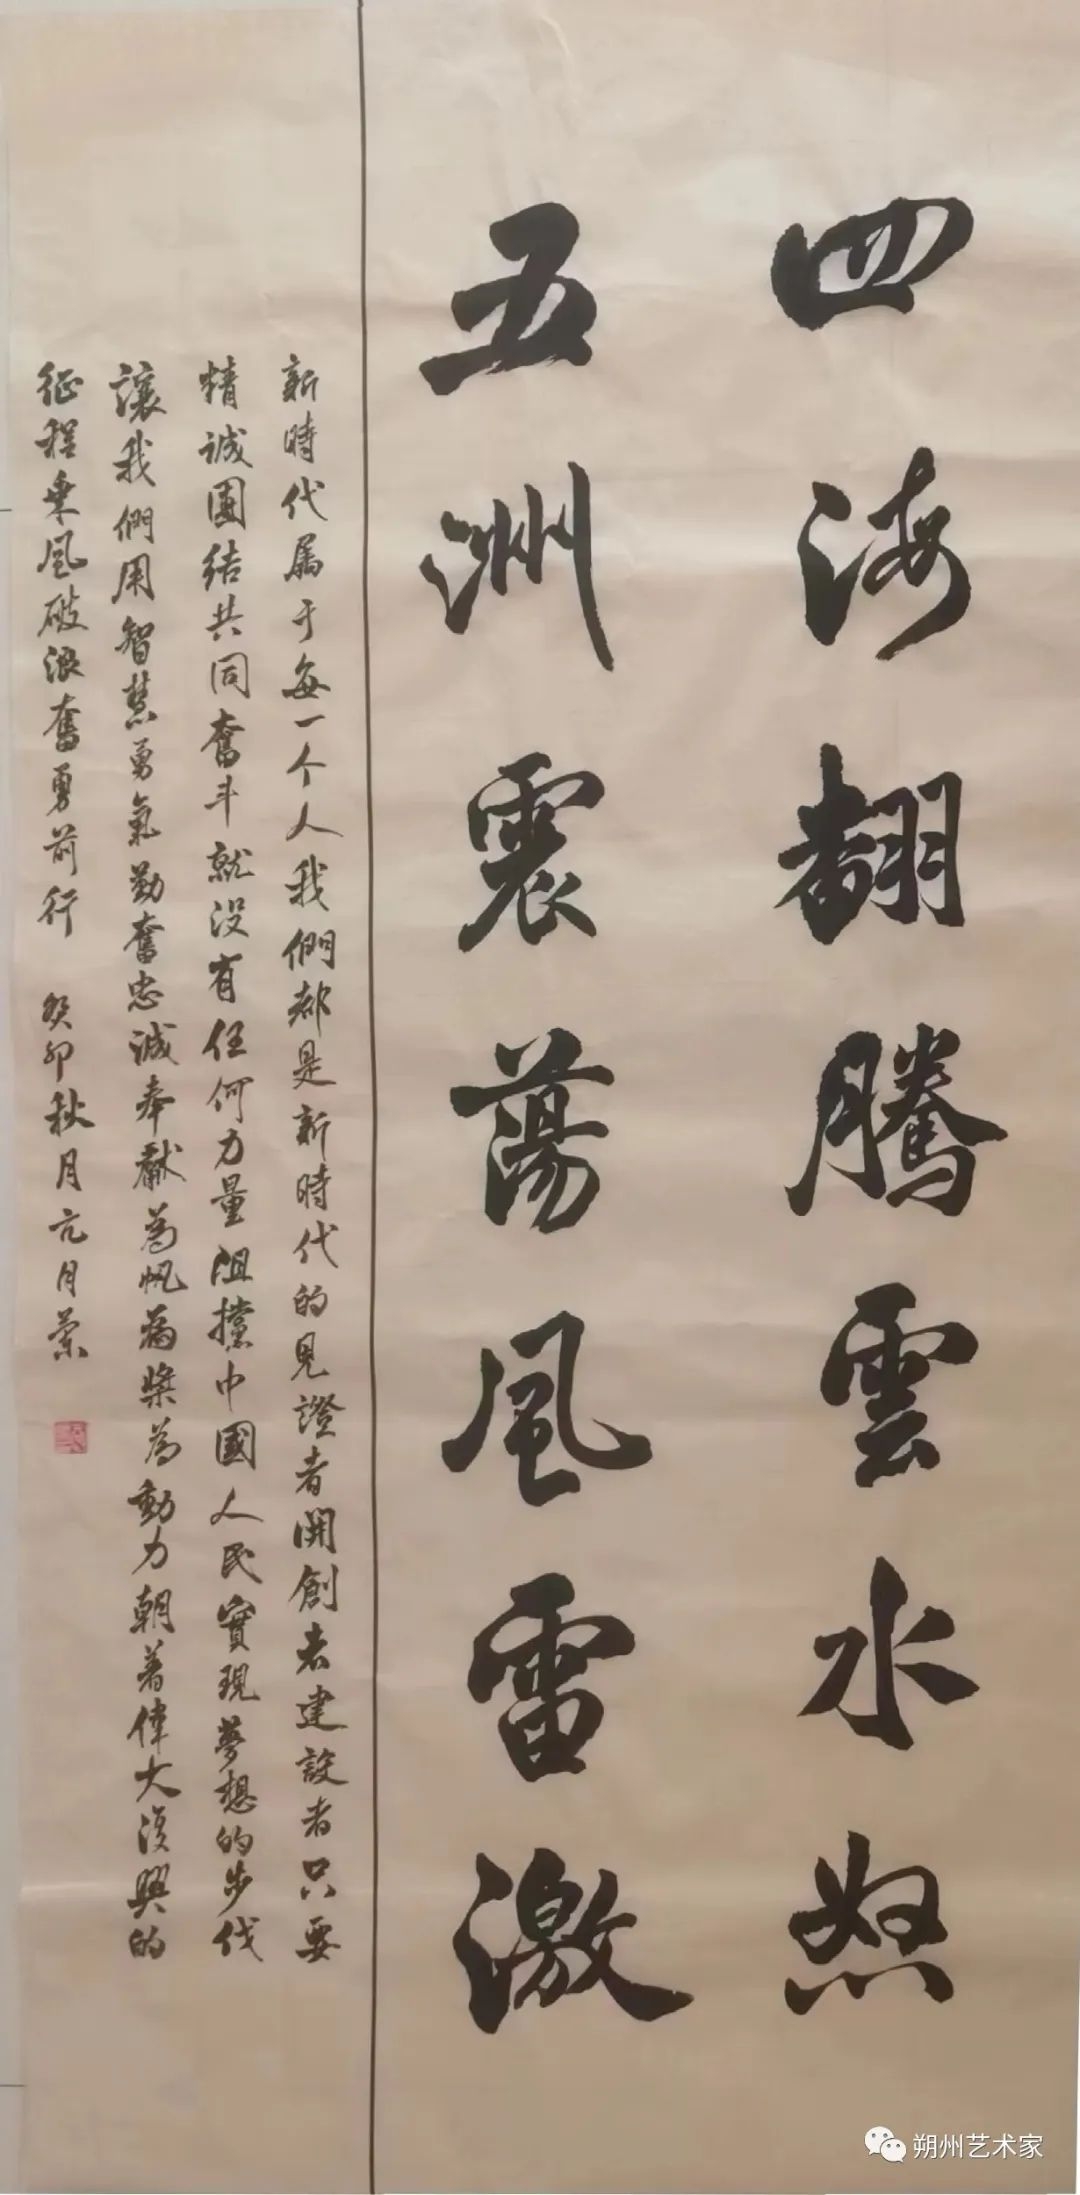 四海翻騰雲水怒
五洲震蕩風雷激
新時代属于每一个人我們都是新時代的見證者開創者建設者只要
精诚團结共同奮斗就没有任何力量阻擋中國人民實現夢想的步伐
讓我們用智慧勇氣勤奮忠誠奉獻為帆為槳為動力朝著偉大復興的
征程乘風破浪奮勇前行 癸卯秋月亢月榮
朔州艺术家